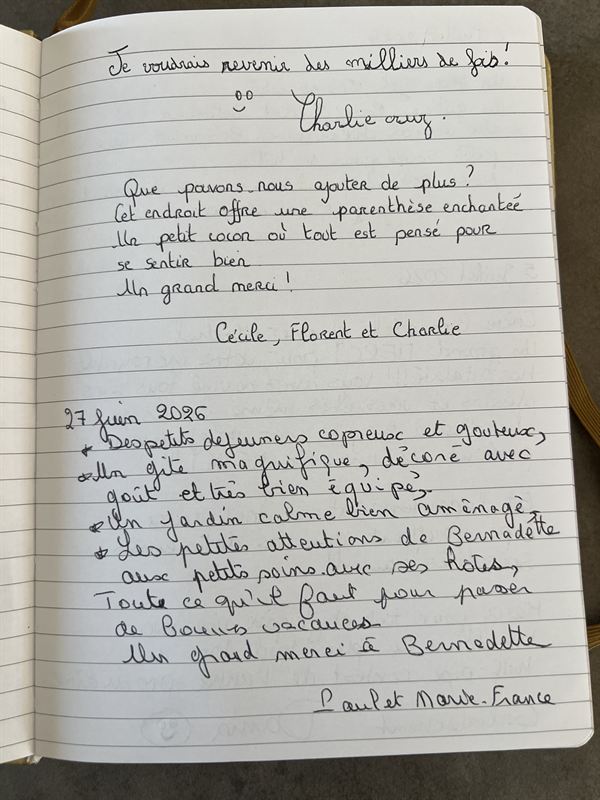 Je voudrais revenir des milliers de fois!
Charlie cruz.
Que pouvons-nous ajouter de plus?
Cet endroit offre une parenthèse enchantée
Un petit cocon où tout est pensé pour
se sentir bien
Un grand merci!
Cécile, Florent et Charlie
27 Juin 2026
* Des petits dejeuners copieux et gouteux,
* Un gîte magnifique, décoré avec
goût et très bien équipé,
* Un jardin calme bien aménagé,
* Les petites attentions de Bernadétte
aux petits soins avec ses hotes,
Toute ce qu'il faut pour passer
de bonnes vacances
Un grand merci à Bernadette
Paul et Marie-France